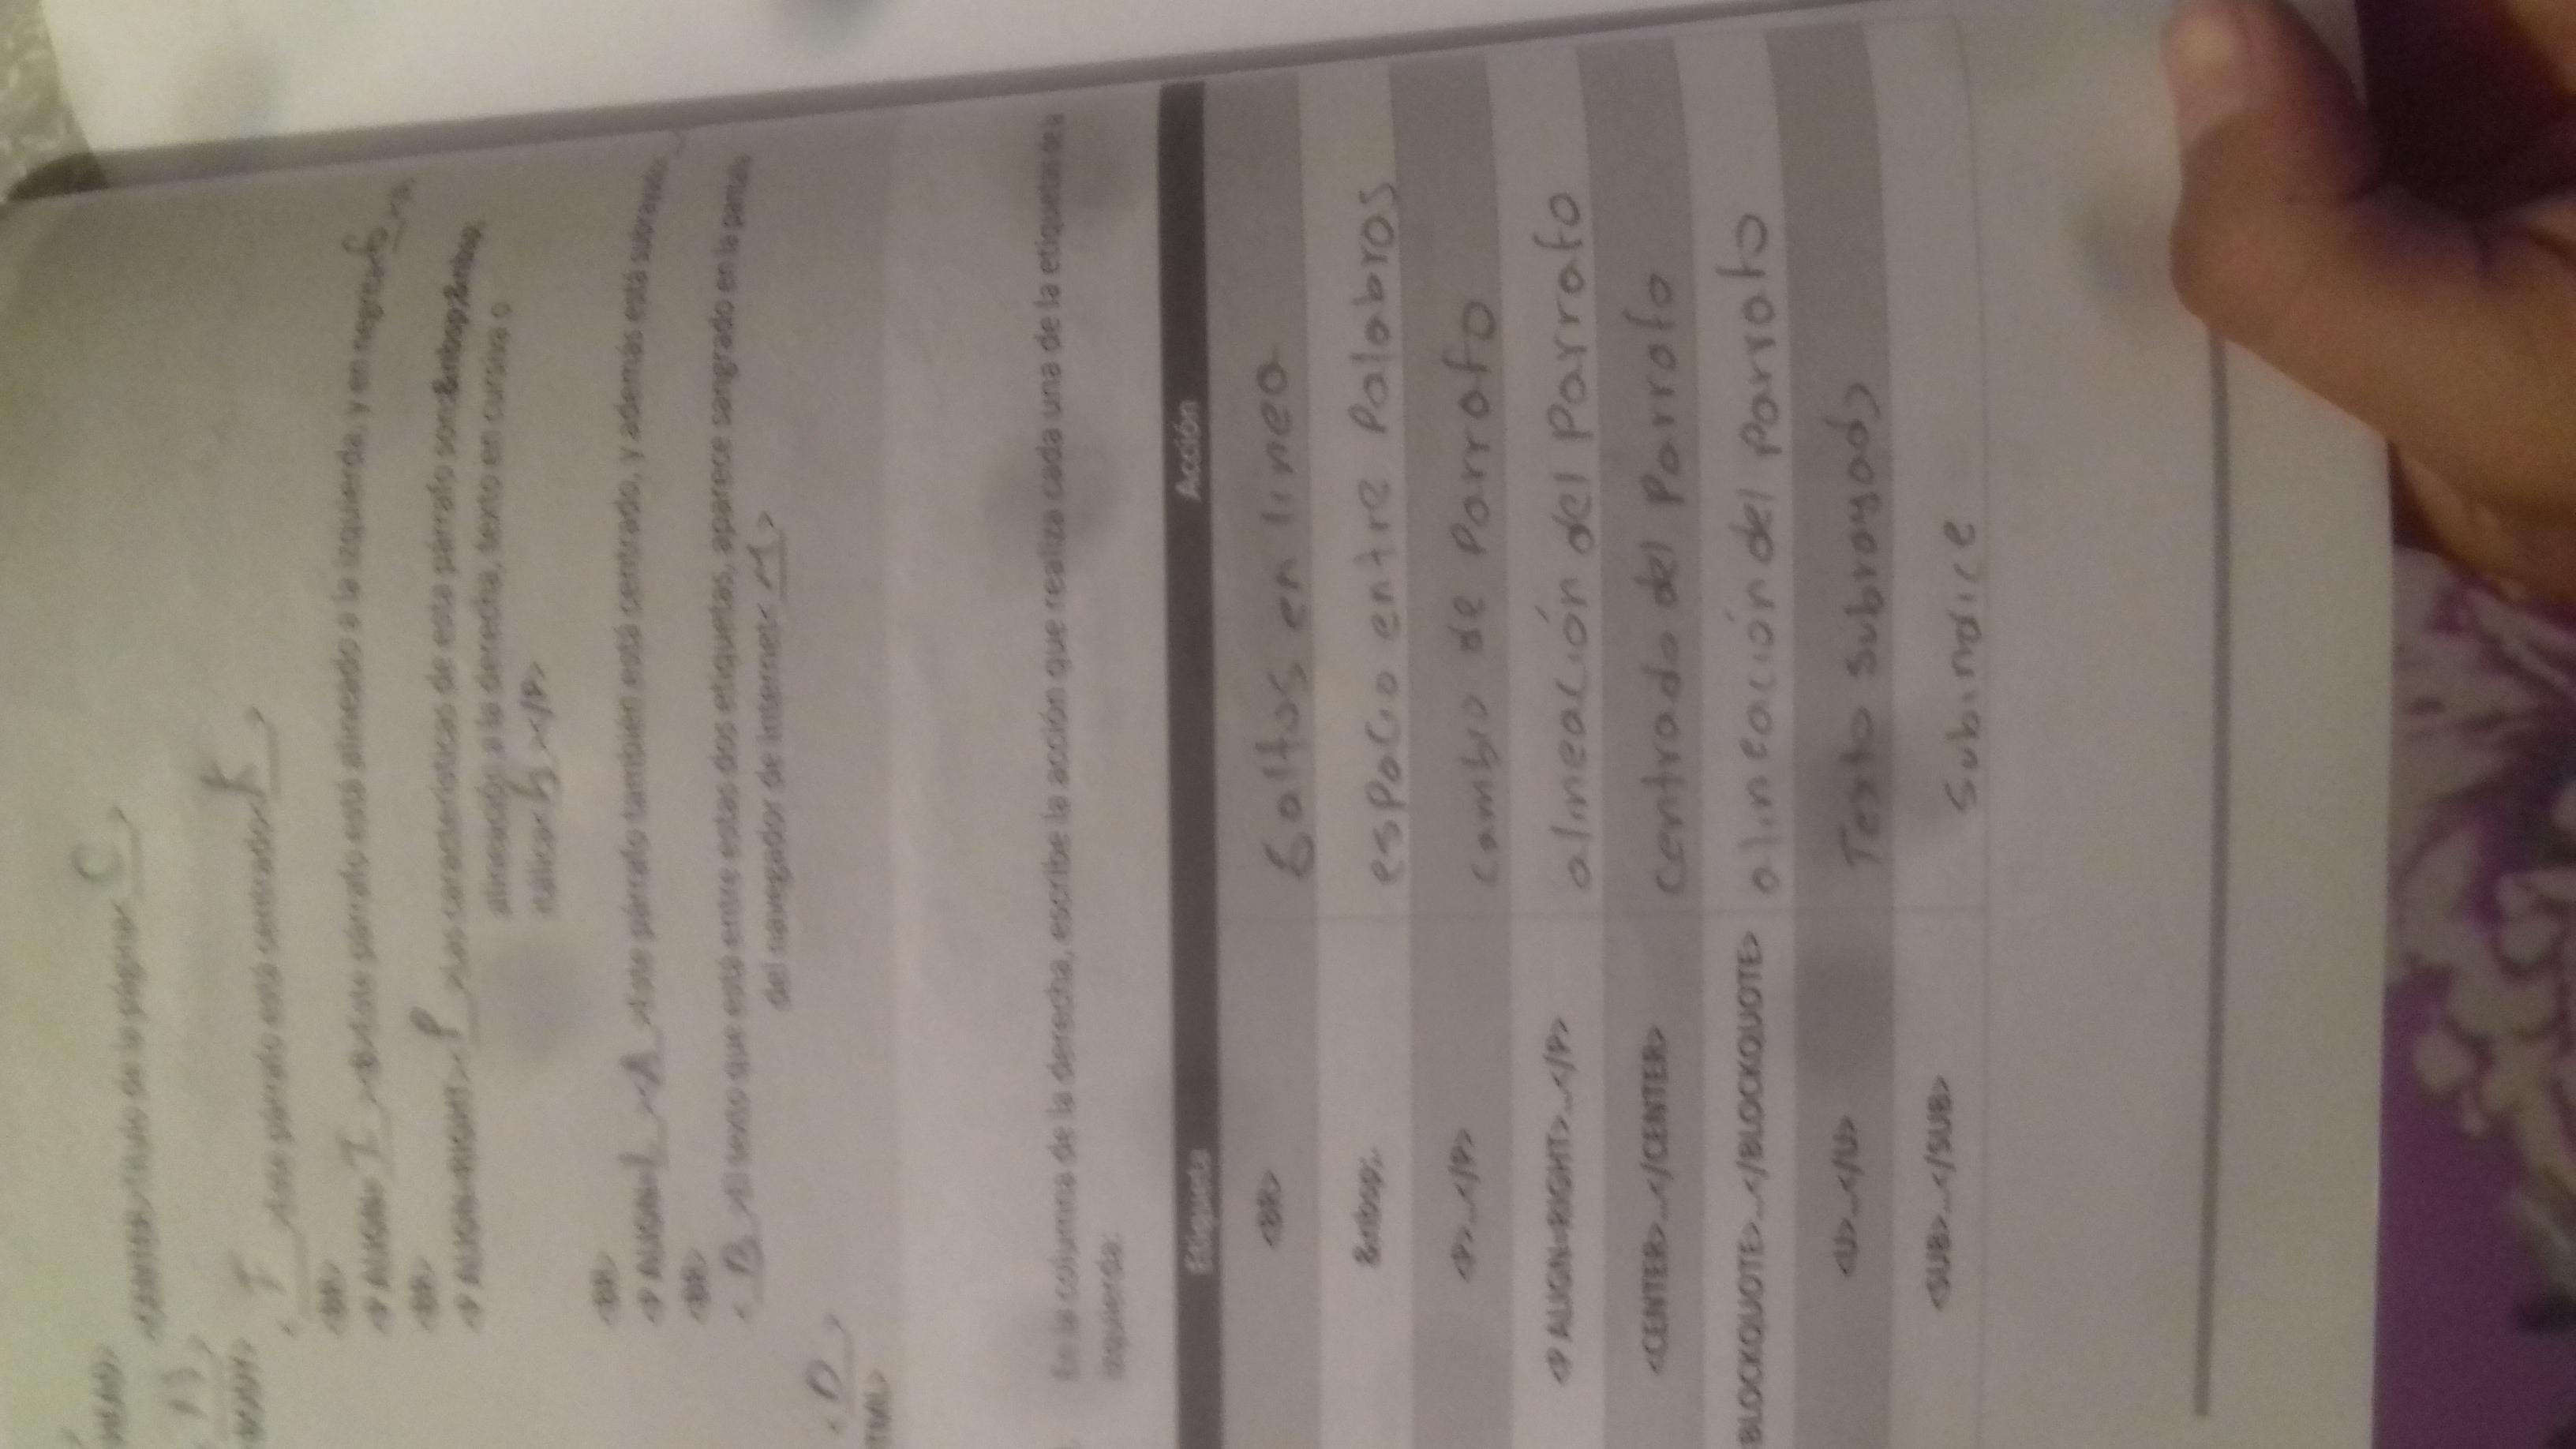 HEAD>
<CENTER>Título de la página< C >
BODY>
Este párrafo está centrado< K >
<BR>
<P ALIGN= I ><B>Este párrafo está alineado a la izquierda, y en negrita<
<BR>
<P ALIGN=RIGHT>< P >Las características de esta párrafo son:&nbsp;&nbsp;
alineación a la derecha, texto en cursiva o
itálica< ></P>
<BR>
<P ALIGN= L >< A >Este párrafo también está centrado, y además está subrayado
<BR>
< B >El texto que está entre estas dos etiquetas, aparece sangrado en la pantalla
del navegador de internet< M >
< D >
TML>
En la columna de la derecha, escribe la acción que realiza cada una de la etiquetas de la
izquierda:
Etiqueta Acción
<BR> Saltos en linea
&nbsp;. espacio entre Palabras
<P>...</P> cambio de Parrafo
<P ALIGN=RIGHT>...</P> alineación del Parrafo
<CENTER>...</CENTER> centrado del Parrafo
BLOCKQUOTE>...</BLOCKQUOTE> alineación del Parrafo
<U>...</U> Texto subrayado
<SUB>...</SUB> Subindice